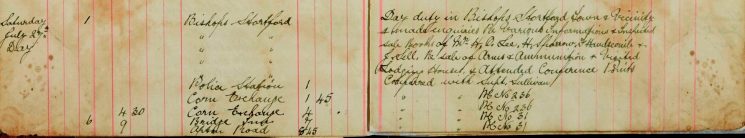 Saturday 1 Bishops Stortford
July 27th "
Day "
"
Police Station 1
Corn Exchange 1 45
4 30 Corn Exchange 4
6 Bridge Inn 7
9 Road 8 45
Day duty in Bishops Stortford Town & Vicinity
& made enquiries Re Various Informations & Inspected
sale Books of Mr W. D. Lee, H. Sparrow,
& Sell. Re sale of Arms & Ammunition & Visited
Lodging Houses, & Attended Conference 1 Points
Conferred with Supt. Sullivan
" " PC No 236
" " PC No 236
" " PC No 31
" " PC No 31